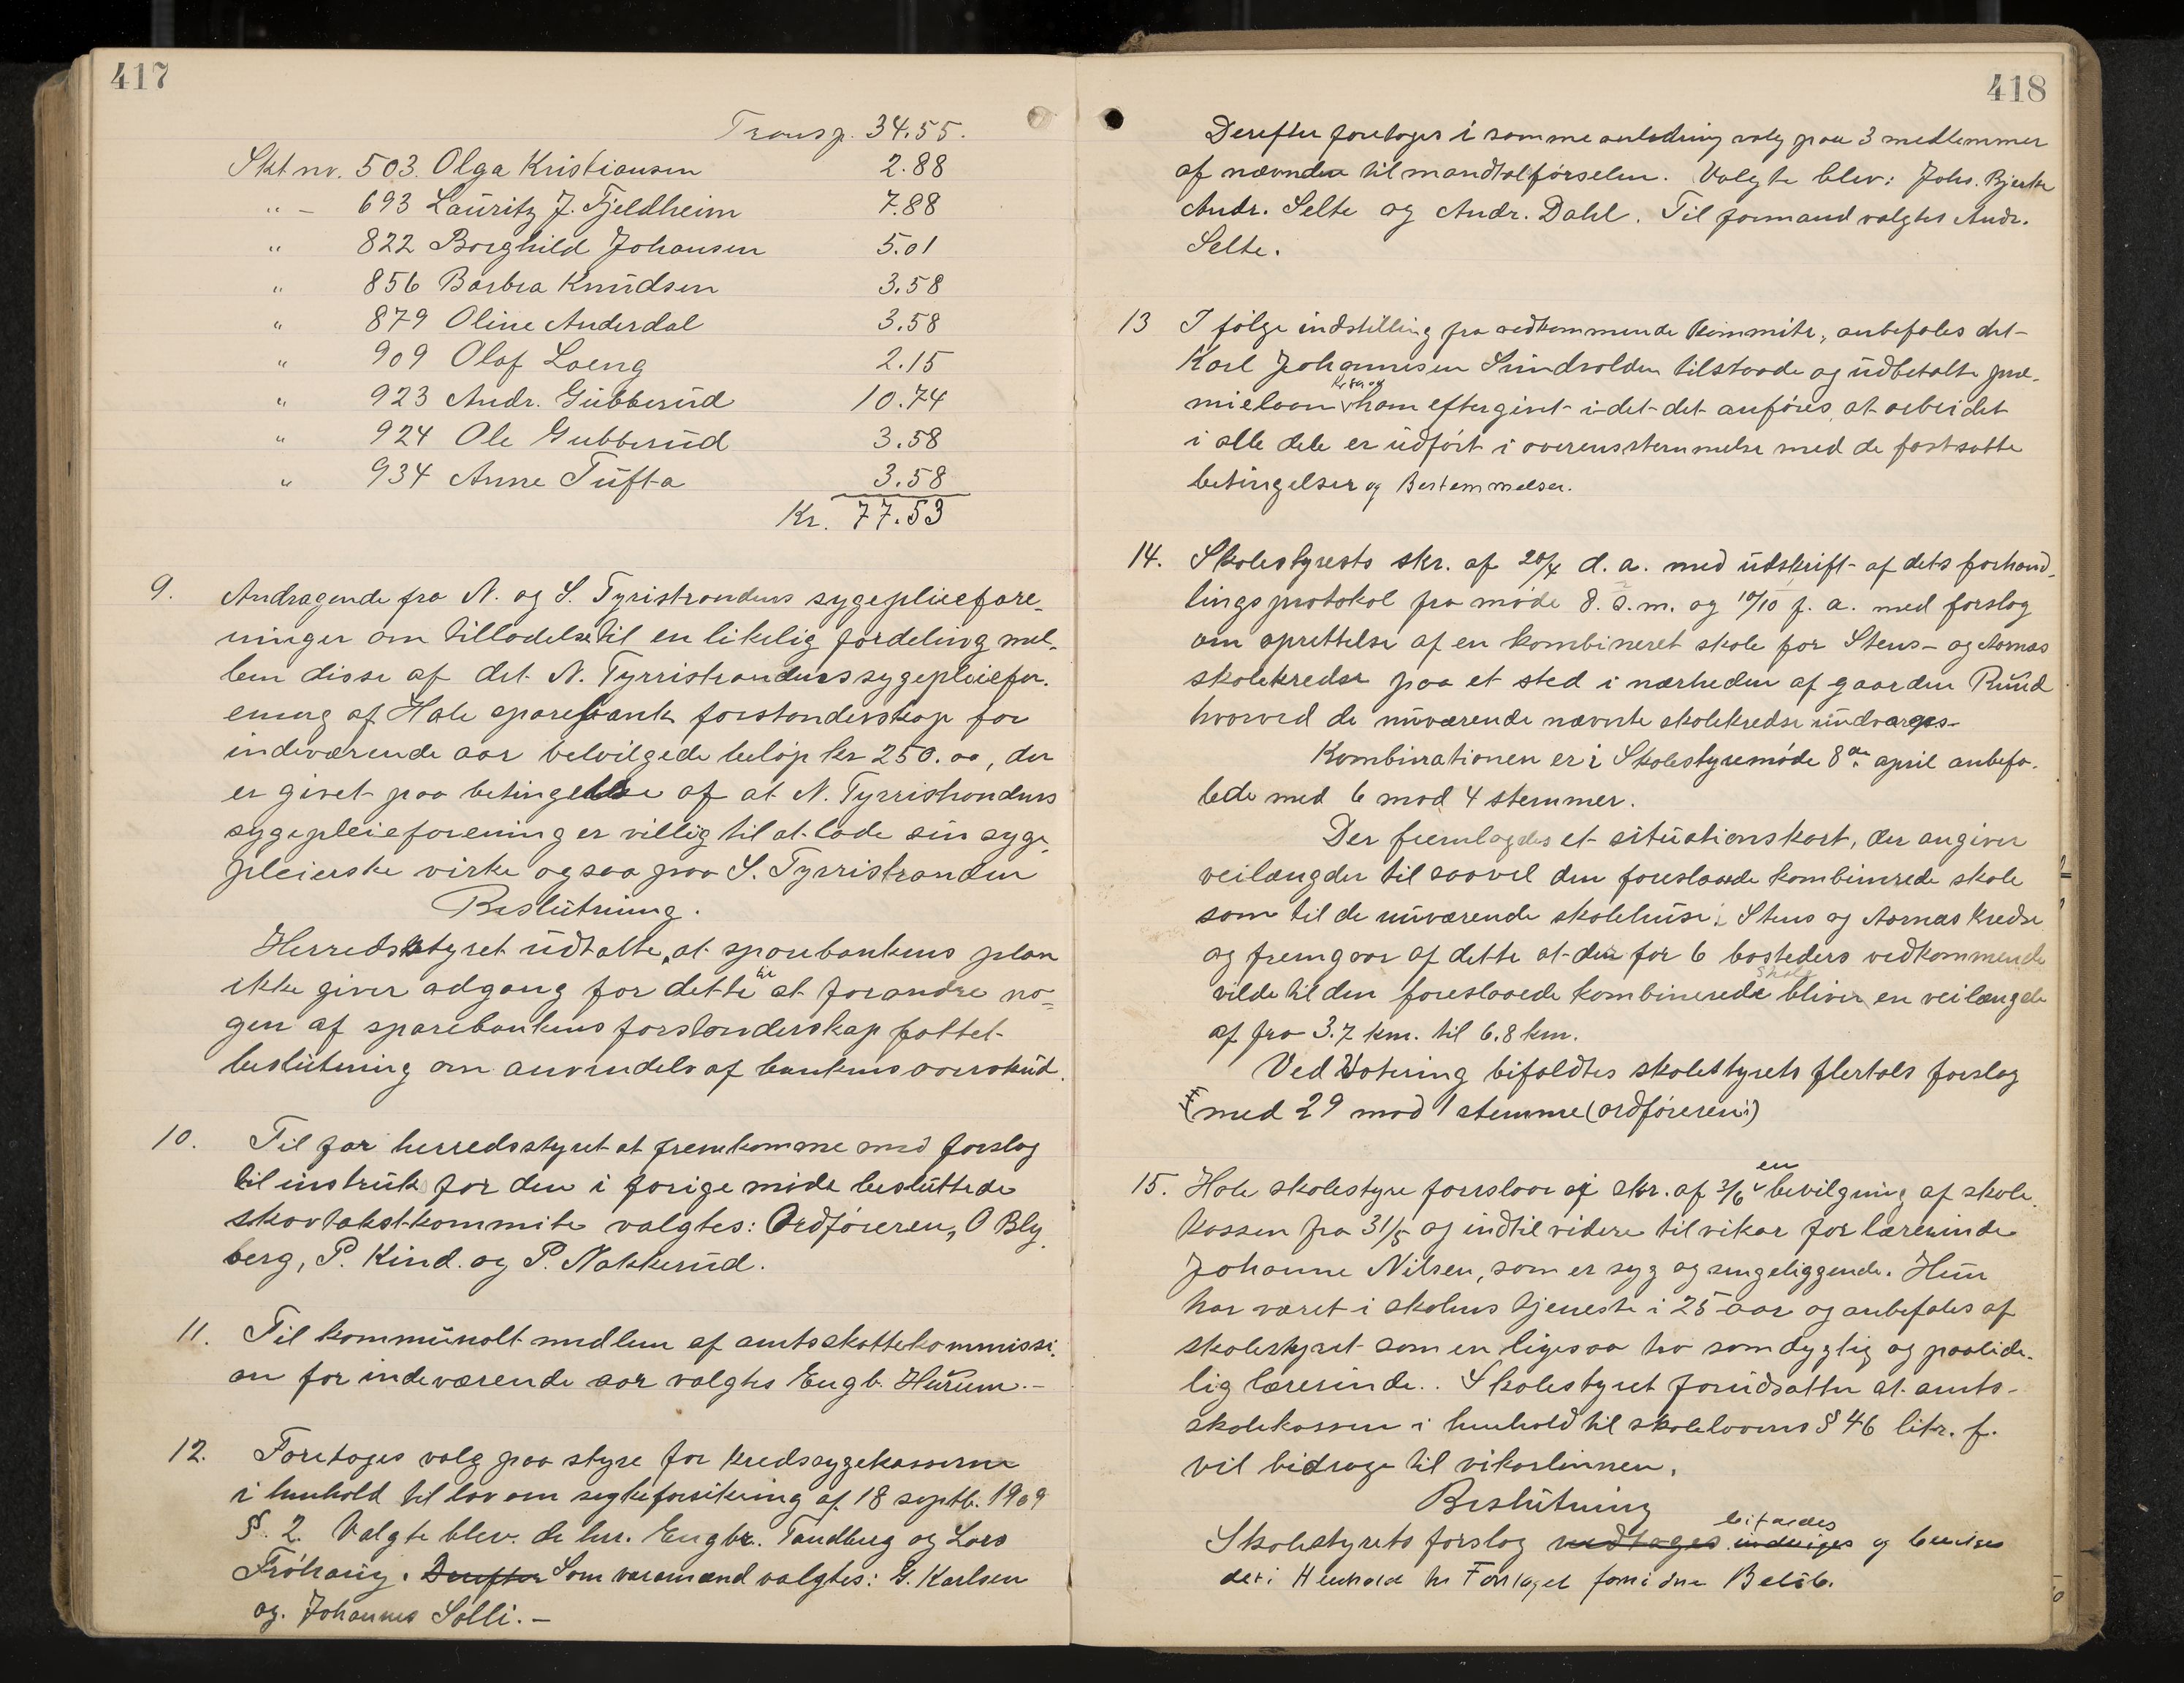 417
Transp. 34.55.
Skt nr. 503. Olga Kristiansen 2.88
" – 693 Lauritz J. Fjeldheim 7.88
" 822 Borghild Johansen 5.01
" 856 Barbra Knudsen 3.58
" 879 Oline Anderdal 3.58
" 909 Olaf Loeng 2.15
" 923 Andr. Gubberud 10.74
" 924 Ole Gubberud 3.58
" 934 Anne Tufta 3.58
Kr. 77.53
9. Andragende fra N. og S. Tyristrandens sygepleiefore-
ninger om tilladelse til en likelig fordeling mel-
lem disse af det N. Tyrristrandens sygepleiefor-
ening af Hole sparebank forstanderskap for
indeværende aar bevilgede beløp kr 250.00, der
er givet paa betingelse af at N. Tyrristrandens
sygepleieforening er villig til at lade sin syge-
pleierske virke ogsaa paa S. Tyrristranden
Beslutning.
Herredsstyret udtalte, at sparebankens plan
ikke giver adgang for dette at forandre no-
gen af sparebankens forstanderskap fattet
beslutning om anvendels af bankens overskud.
10. Til for herredsstyret at fremkomme med forslag
til instruk for den i forige møde besluttede
skovtakstkommite valgtes: Ordføreren, O Bly-
berg, P. Kind. og P. Nakkerud.
11. Til kommunalt medlem af amtsskattekommissi-
on for indeværende aar valgtes Engb. Hurum.–
12. Foretoges valg paa styre for kredssygekasserne
i henhold til lov om sygeforsikring af 18 septb. 1909
§. 2. Valgte blev. de hrr. Engbr. Tandberg og Lars
Frøhaug. Derefter Som varamænd valgtes: G. Karlsen
og. Johannes Solli.–
418
Derefter foretoges i samme anledning valg paa 3 medlemmer
af nævnden til mandtalførselen. Valgte blev: Johs. Bjerke
Andr. Selte og Andr. Dahl. Til formand valgtes Andr.
Selte.
13 I følge indstilling fra vedkommende kommite, anbefales det
Karl Johannesen Sundvolden tilstaade og udbetalte præ-
mielaan ham eftergivet i det det anføres at arbeidet
i alle dele er udført i overensstemmelse med de fastsatte
betingelser og Bestemmelser.
14. Skolestyrets skr. af 20/4 d. a. med udskrift af dets forhand-
lingsprotokol fra møde 8. d. m. og 10/10 f. a. med forslag
om oprettelse af en kombineret skole for Stens- og Aornæs
skolekredse paa et sted i nærheden af gaarden Ruud
hvorved de nuværende nævnte skolekredse
Kombinationen er i Skolestyremøde 8de april anbefa-
lede med 6 mod 4 stemmer.
Der fremlagdes et situationskart, der angiver
veilængder til saavel den foreslaaede kombinerede skole
som til de nuværende skolehuse i Stens og Aornæs kredse
og fremgaar af dette at der for 6 bosteders vedkommende
skole
vilde til den foreslaaede kombinerede bliver en veilængde
af fra 3.7 km. til 6.8 km.
Ved Votering bifaldtes skolestyrets flertals forslag
med 29 mod 1 stemme (ordføreren's)
en
15. Hole skolestyre foreslaar i skr. af 3/6 bevilgning af skole-
kassen fra 31/5 og indtil videre til vikar for lærerinde
Johanne Nilsen, som er syg og sengeliggende. Hun
har været i skolens tjeneste i 25 aar og anbefales af
skolestyret som en ligesaa tro som dygtig og paalide-
lig lærerinde.. Skolestyret forudsætter at amts-
skolekassen i henhold til skolelovens § 46 litr. f.
vil bidrage til vikarlønnen.
Beslutning
bifaldes
Skolestyrets forslag vedtages og
det i Henhold til Forslaget fornødne Beløb.